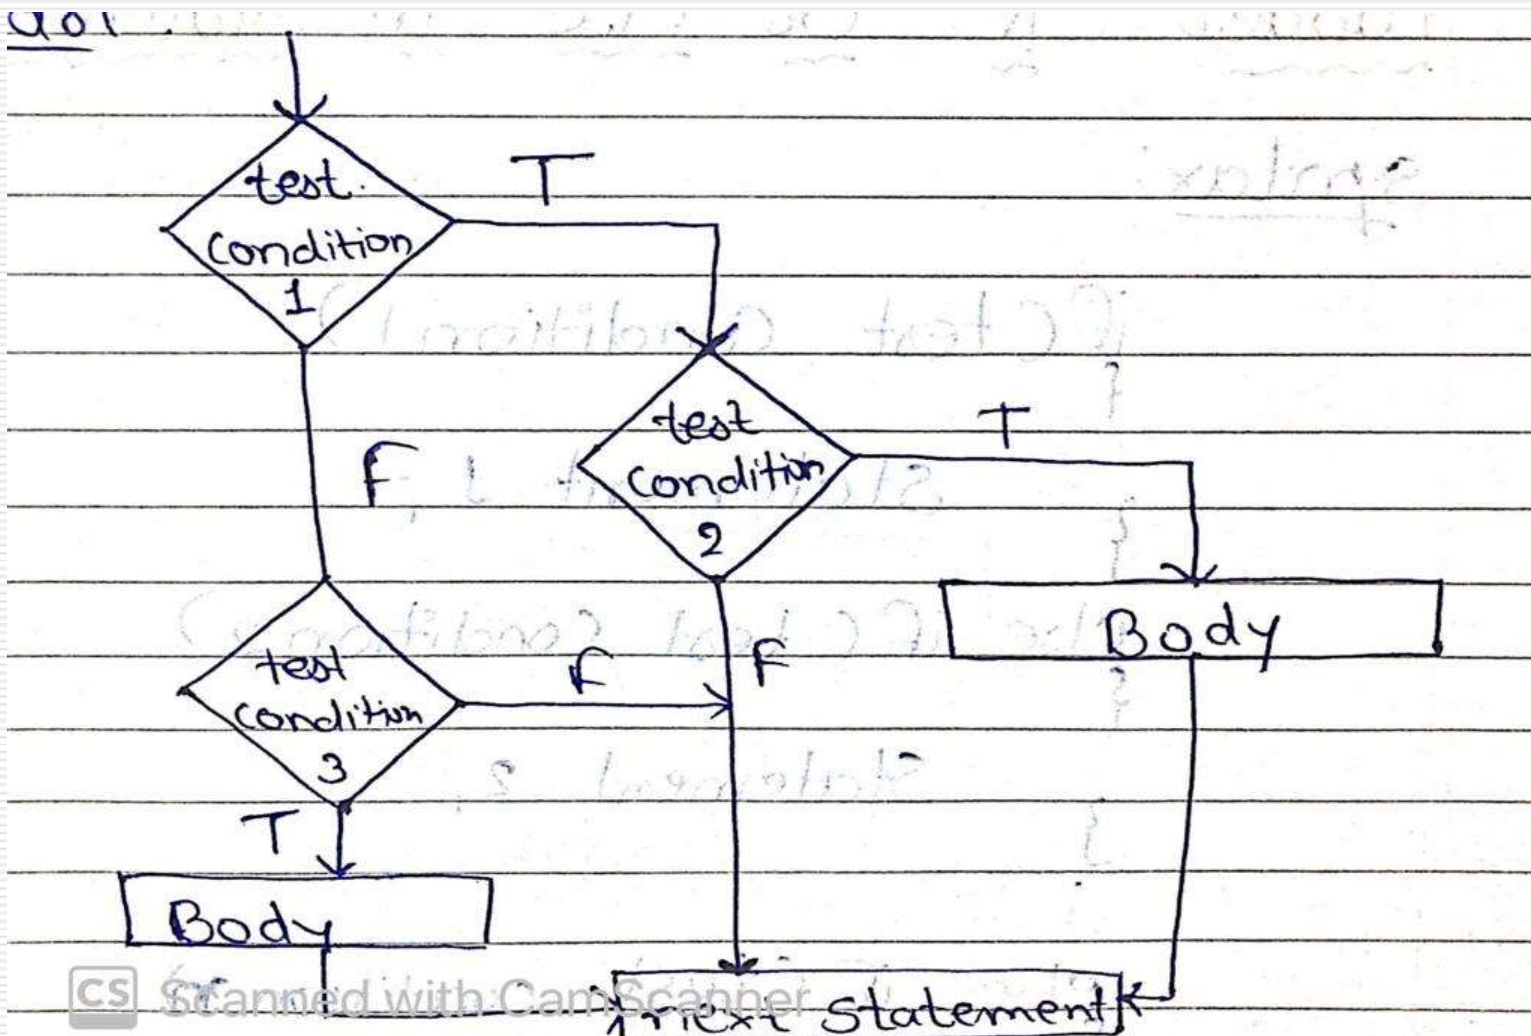 T
test
condition
1
F
test
condition
2
T
F
Body
test
condition
3
F
T
Body
next statement
CS Scanned with CamScanner